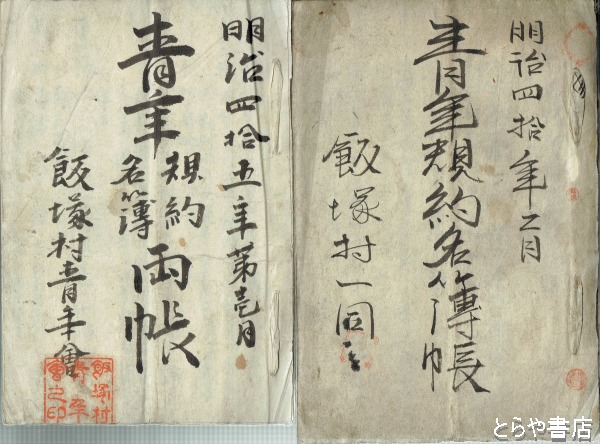 明治四拾五年第壱月
青年
規約
名簿
両帳
飯塚村青年會
飯塚村
青年
會之印
明治四拾年二月
青年規約名簿帳
飯塚村一同
とらや書店